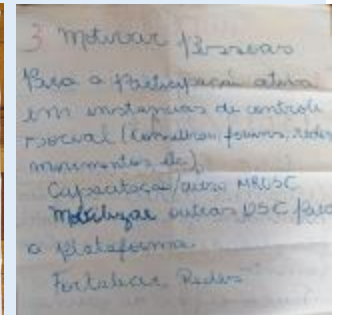 3 Motivar pessoas
Para a participação ativa
em instancias de controle
social (Conselhos, foruns, redes,
movimentos etc)
Capacitação/curso MROSC
Mobilizar outras OSC para
a plataforma
Fortalecer Redes